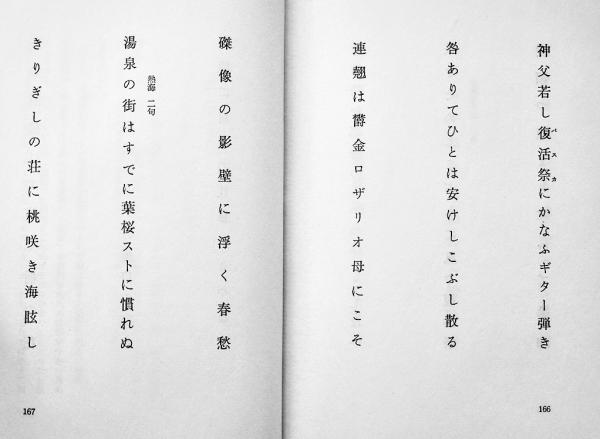 神父若し復活祭にかなふギター弾き
パスカ
咎ありてひとは安けしこぶし散る
連翹は欝金ロザリオ母にこそ
166
磔像の影壁に浮く春愁
熱海 二句
湯泉の街はすでに葉桜ストに慣れぬ
きりぎしの荘に桃咲き海眩し
167